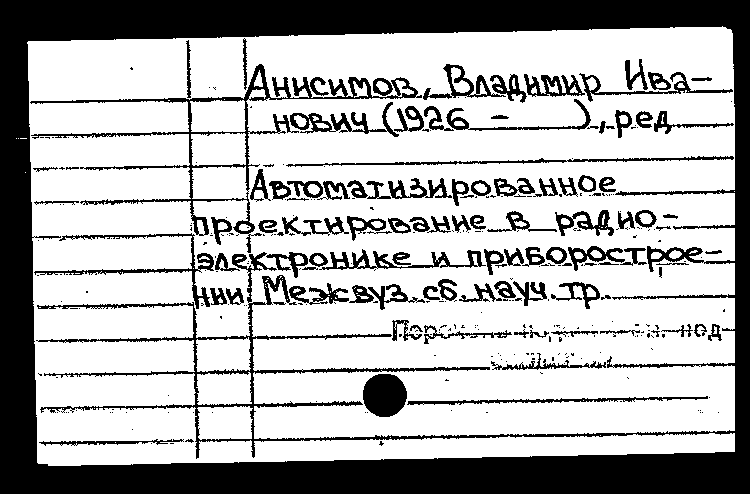 Анисимов, Владимир Ива-
нович (1926 -      )., ред
Автоматизированное
проектирование в радио-
электронике и приборострое-
нии: Межвуз. сб. науч. тр.
под